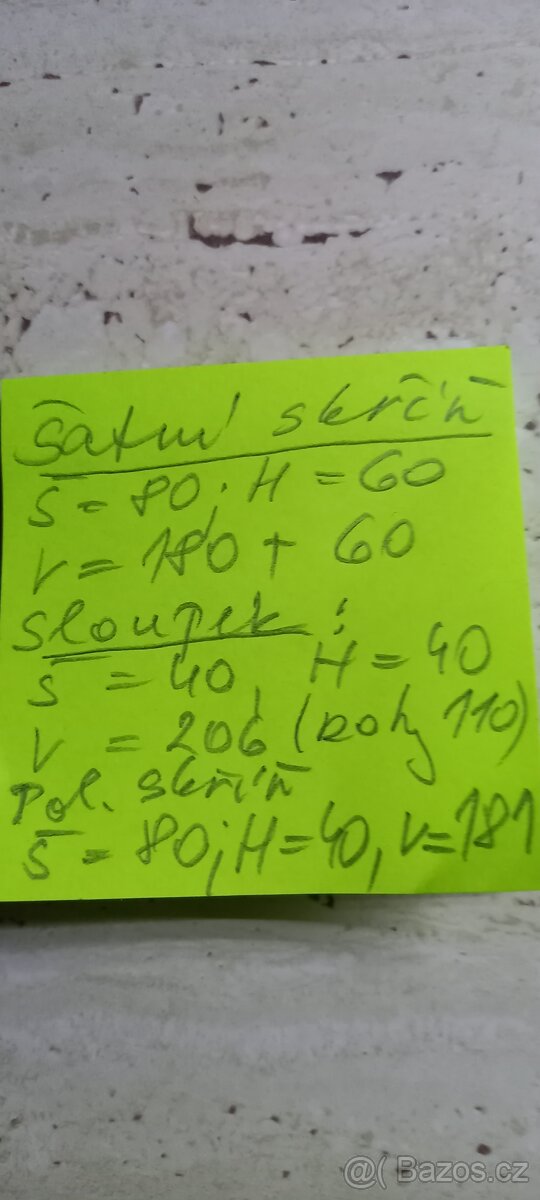 Šatní skříň
Š = 80; H = 60
V = 180 + 60
Sloupek:
Š = 40, H = 40
V = 206 (110)
Pol. skříň
Š = 80; H = 40, V = 181
@( Bazos.cz